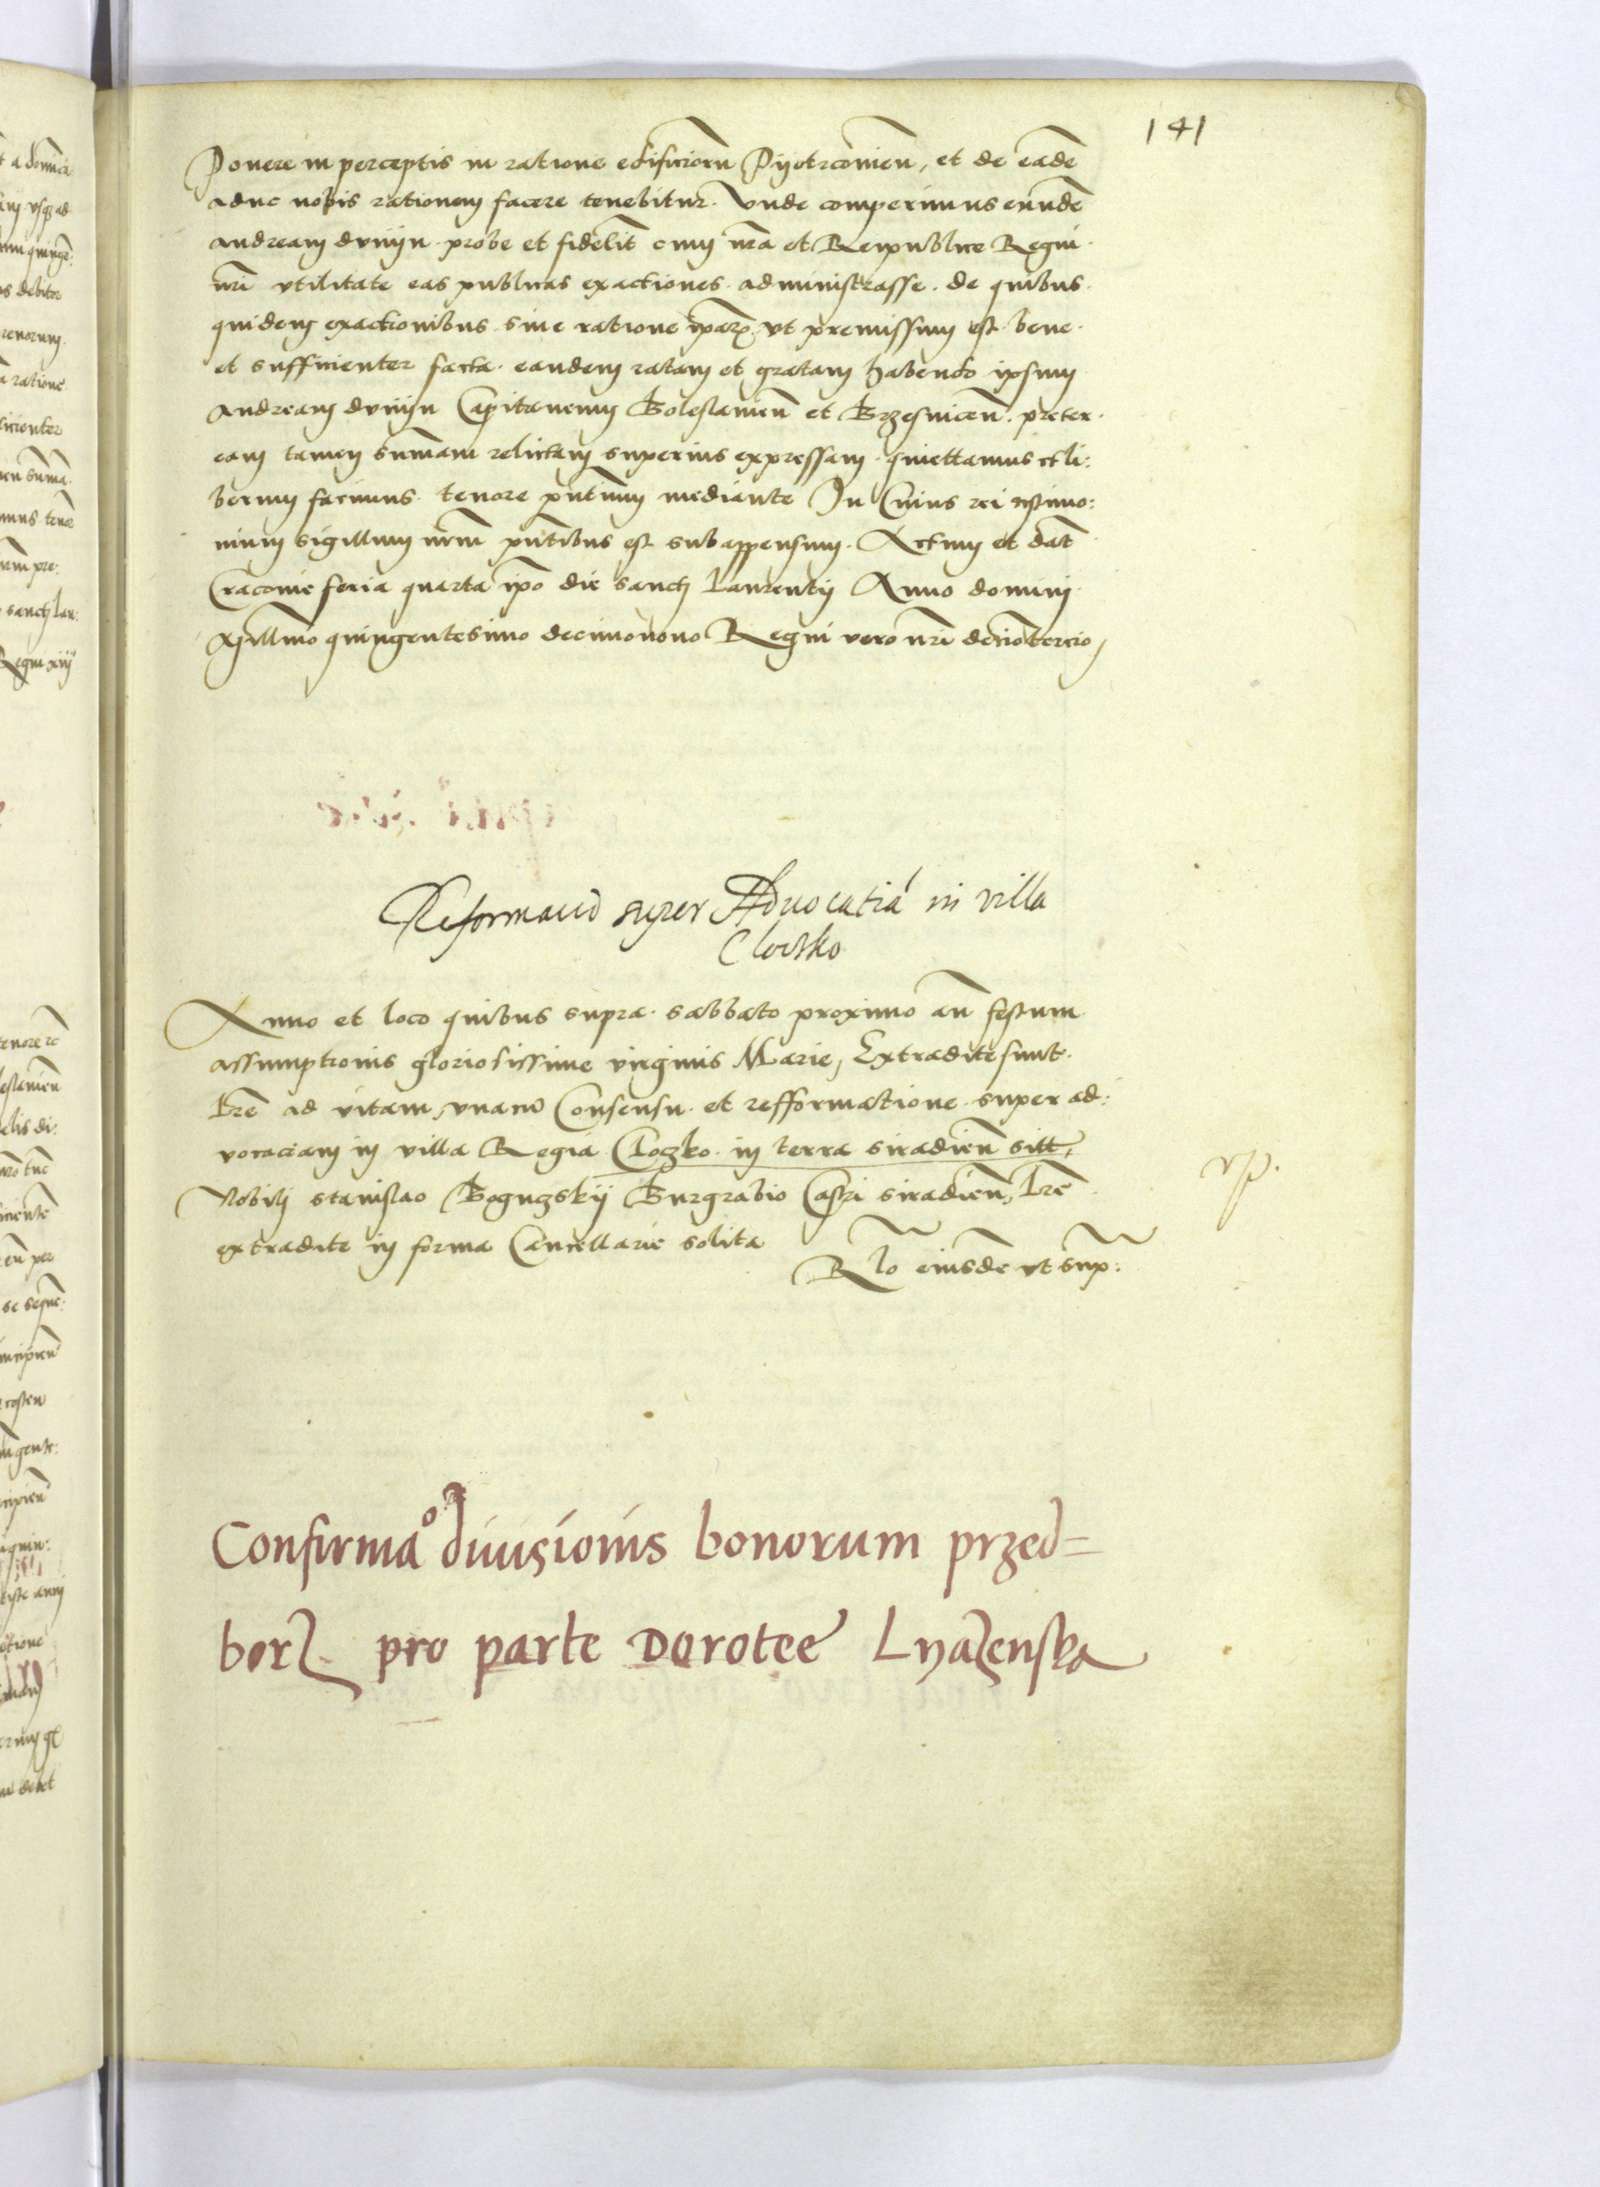 141
Ponere in perceptis in ratione edificiorũ Pyotrconieñ, et de eadẽ
aduc nobis rationem facere tenebitur. Unde comperimus eundẽ
andream dvnijn probe et fidelit̃ cum nr̃a et Reipublice Regni
nr̃i vtilitate eas publicas exactiones administrasse. de quibus
quidem exactionibus sine ratione ip̃ar vt premissum est bene
et sufficienter facta eandem ratam et gratam habendo ipsum
andream dvnijn Capitaneum Bolestanieñ et Brzesniceñ. preter
eam tamen sum̃am relictam superius expressam quiettamus et li:
berum facimus tenore pñtium mediante In Cuius rei testimo:
nium sigillum nr̃m pñtibus est subappensum. Actum et dat̃
Cracouie feria quarta ip̃o die sancti Laurentij Anno domini
Millm̃o quingentesimo decimonono Regni vero nr̃i deciotercio
Reformacio super Aduocatiã in villa
Cloczko
Anno et loco quibus supra sabbato proximo añ festum
assumptionis gloriosissime virginis Marie, Extradite sunt
Lr̃e ad vitam vnacũ Consensu et refformatione super ad:
vocaciam in villa Regia Cloczko in terra siradieñ sitt,
Nobili stanislao Boguczskij Burgrabio Castri siradieñ, Lr̃e
extradite in forma Cancellarie solita
Rlõ eiusdẽ vt sup̃:
Confirmaᵒ diuisionis bonorum przed=
borz pro parte Dorotee Lyazenska